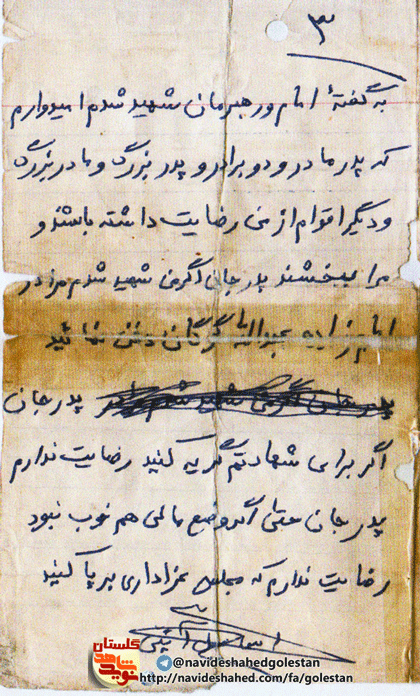 ۳
به گفتهٔ امام و رهبرمان شهید شدم امیدوارم
که پدر مادر و دو برادر و پدر بزرگ و مادربزرگ
و دیگر اقوام از من رضایت داشته باشند و
مرا ببخشند پدر جان اگر من شهید شدم مرا در
امامزاده عبدالله گرگان دفن نمائید
پدر جان
اگر برای شهادتم گریه کنید رضایت ندارم
پدر جان حتی اگر وضع مالی هم خوب نبود
رضایت ندارم که مجلس عزاداری برپا کنید
گلستان
شاهد
نوید
@navideshahedgolestan
http://navideshahed.com/fa/golestan